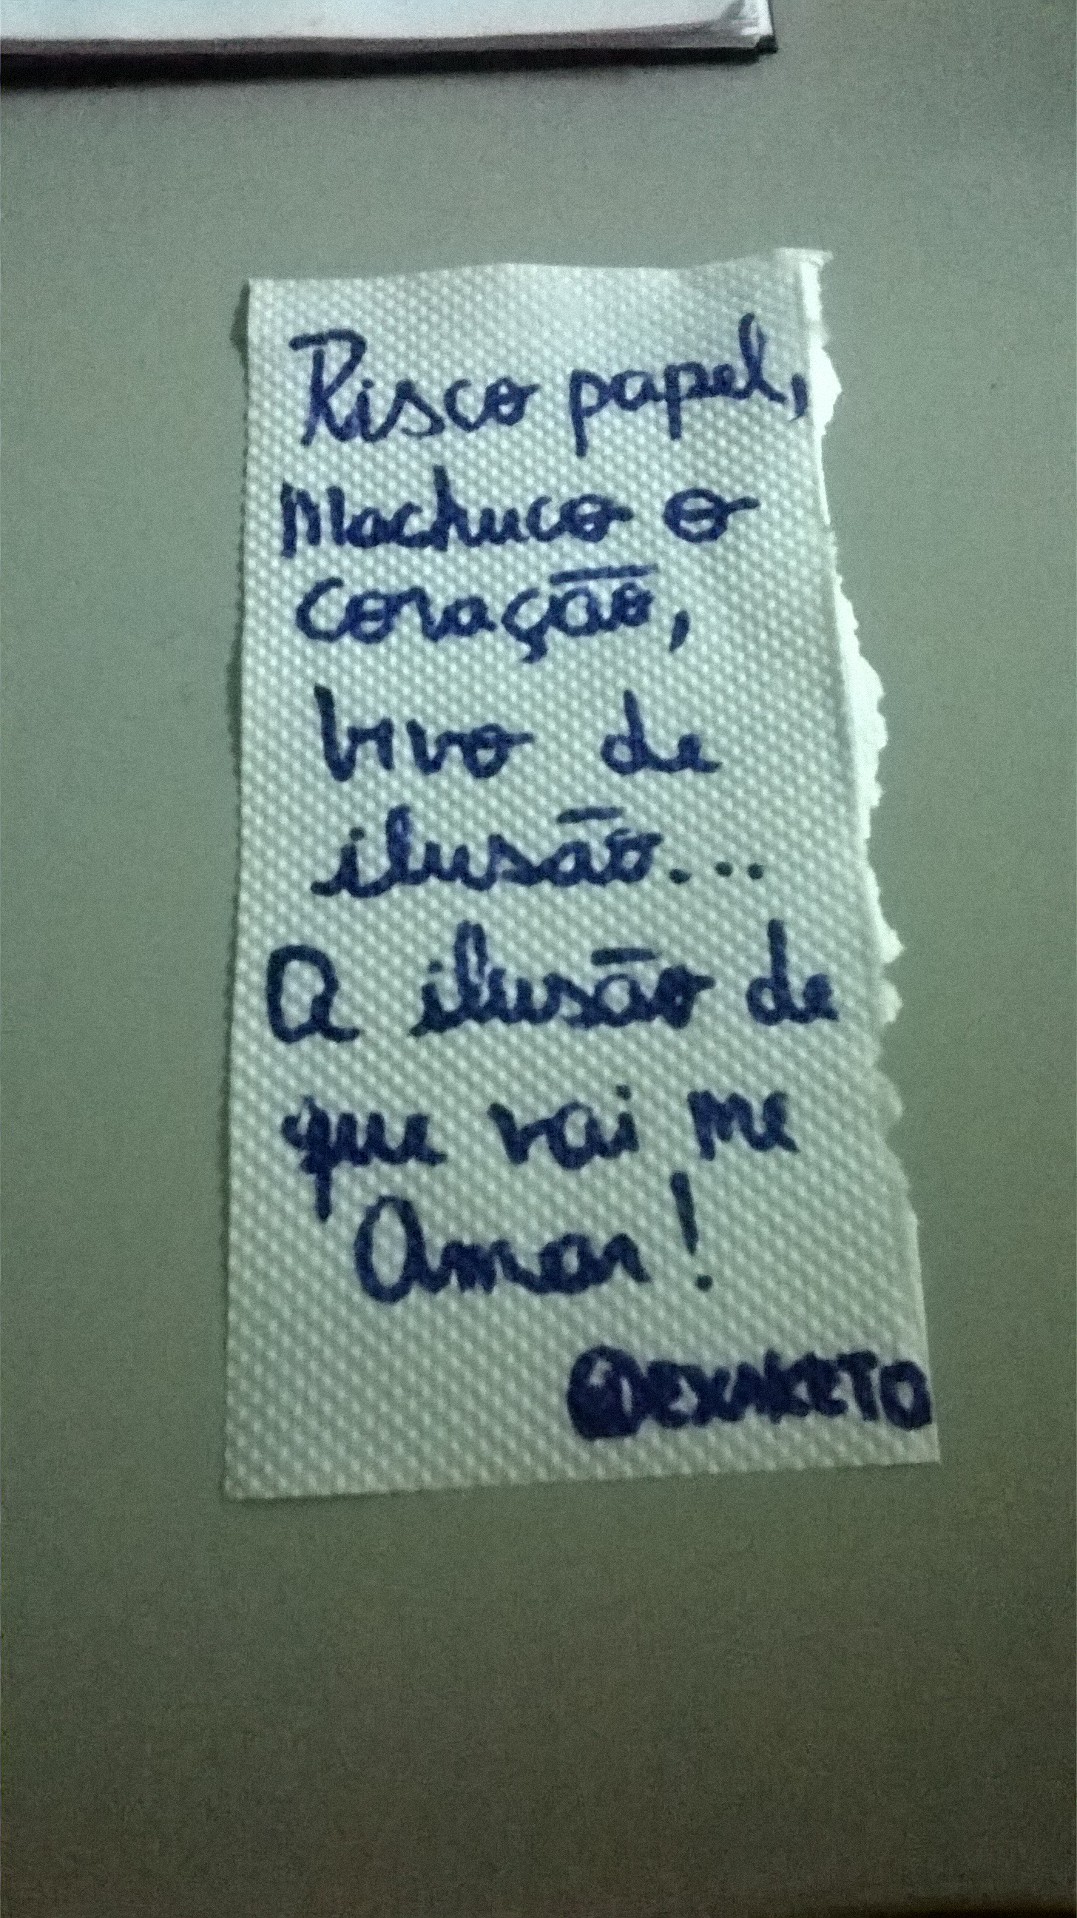 Risco papel,
Machuco o
coração,
Vivo de
ilusão...
A ilusão de
que vai me
Amar!